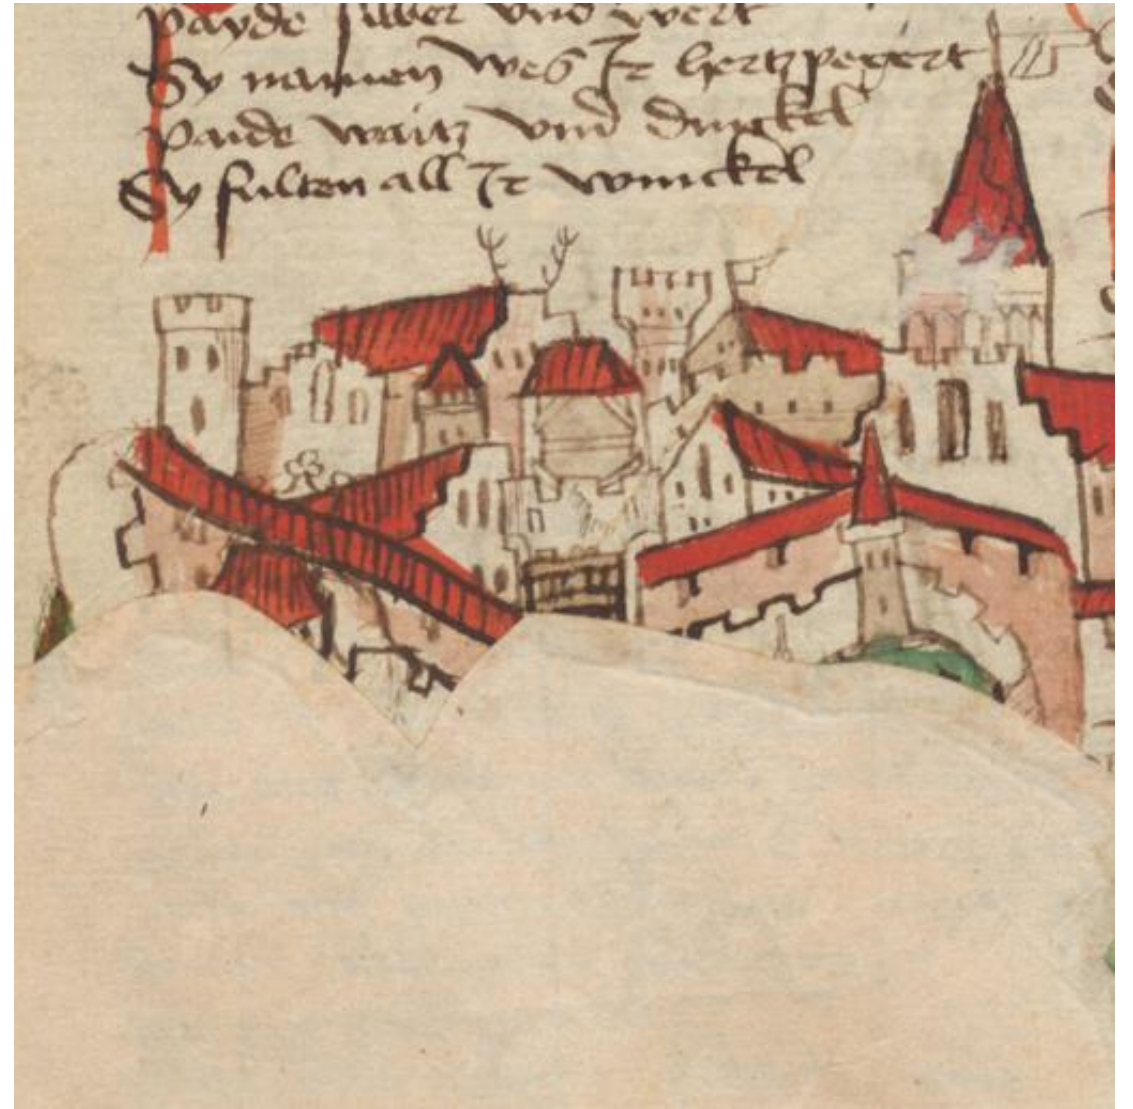 payde silber vnd wert
Sy namen wes Ir hertz pegert
paide waitz vnd dinckel
Sy fulten all Ir winckel